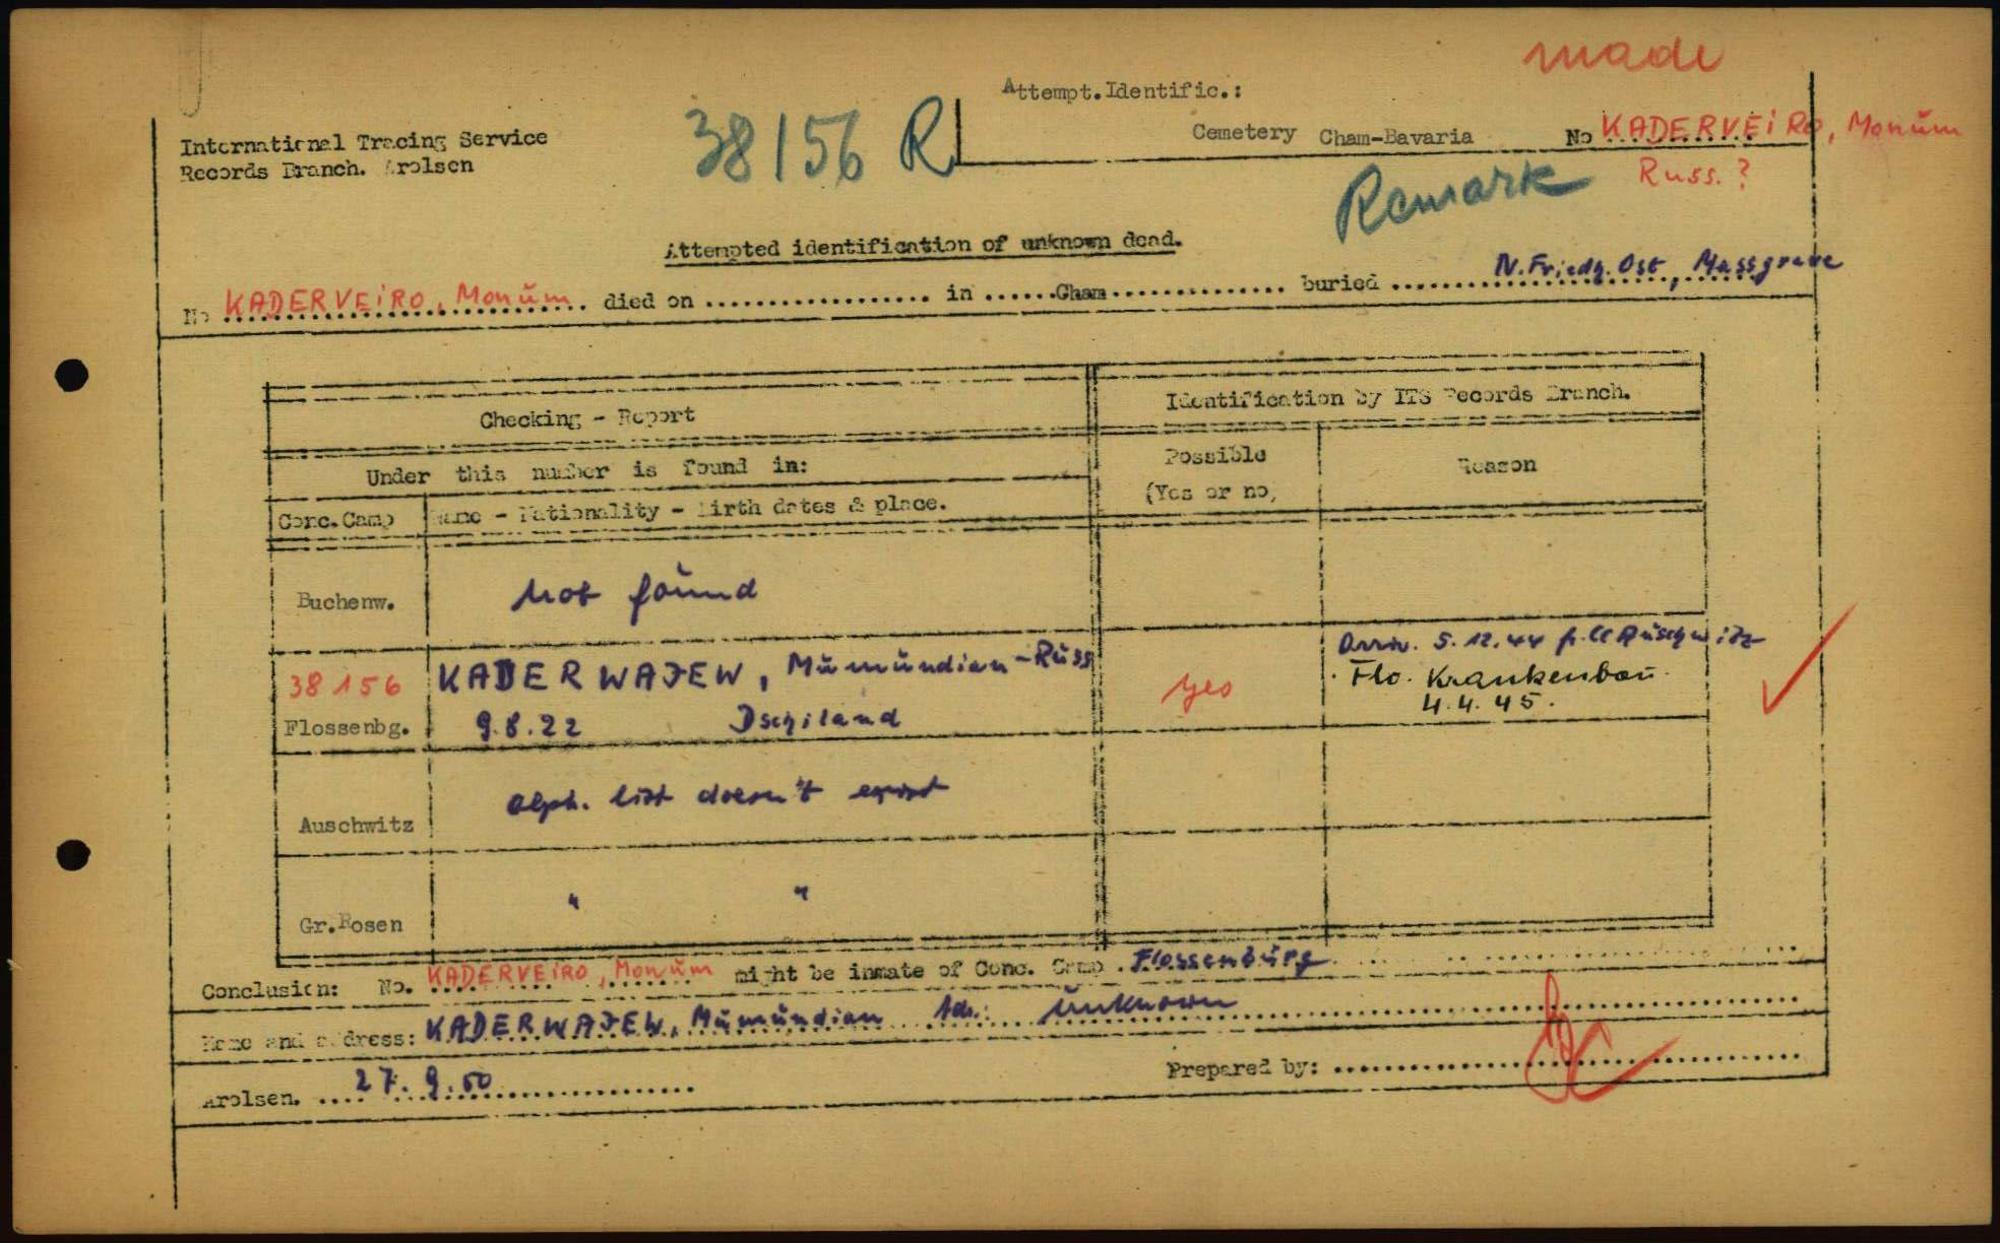 made
Attempt.Identific.:
International Tracing Service
Records Branch. Arolsen
38156 R
Cemetery Cham-Bavaria No KADERVEiRO, Monŭm
Russ.?
Remark
Attempted identification of unknown dead.
No KADERVEiRO, Monŭm died on .................. in ......Cham.............. buried N.Friedh. Ost, Massgrave
Checking - Report
Identification by ITS Records Branch.
Under this number is found in:
Possible
(Yes or no)
Reason
Conc.Camp
Name - Nationality - Birth dates & place.
Buchenw.
not foŭnd
38156
Flossenbg.
KADERWAJEW, Mŭmŭndian - Rŭss
9.8.22 Dschiland
yes
Arriv. 5.12.44 f. CC Aŭschwitz
Flo. Krankenbaŭ
4.4.45.
Auschwitz
alph. list doesn't exist
Gr.Rosen
" "
Conclusion: No. KADERVEiRO, Monŭm might be inmate of Conc. Camp Flossenbŭrg
Name and address: KADERWAJEW, Mŭmŭndian Adr.: ŭnknown
Arolsen. 27.9.50
Prepared by: